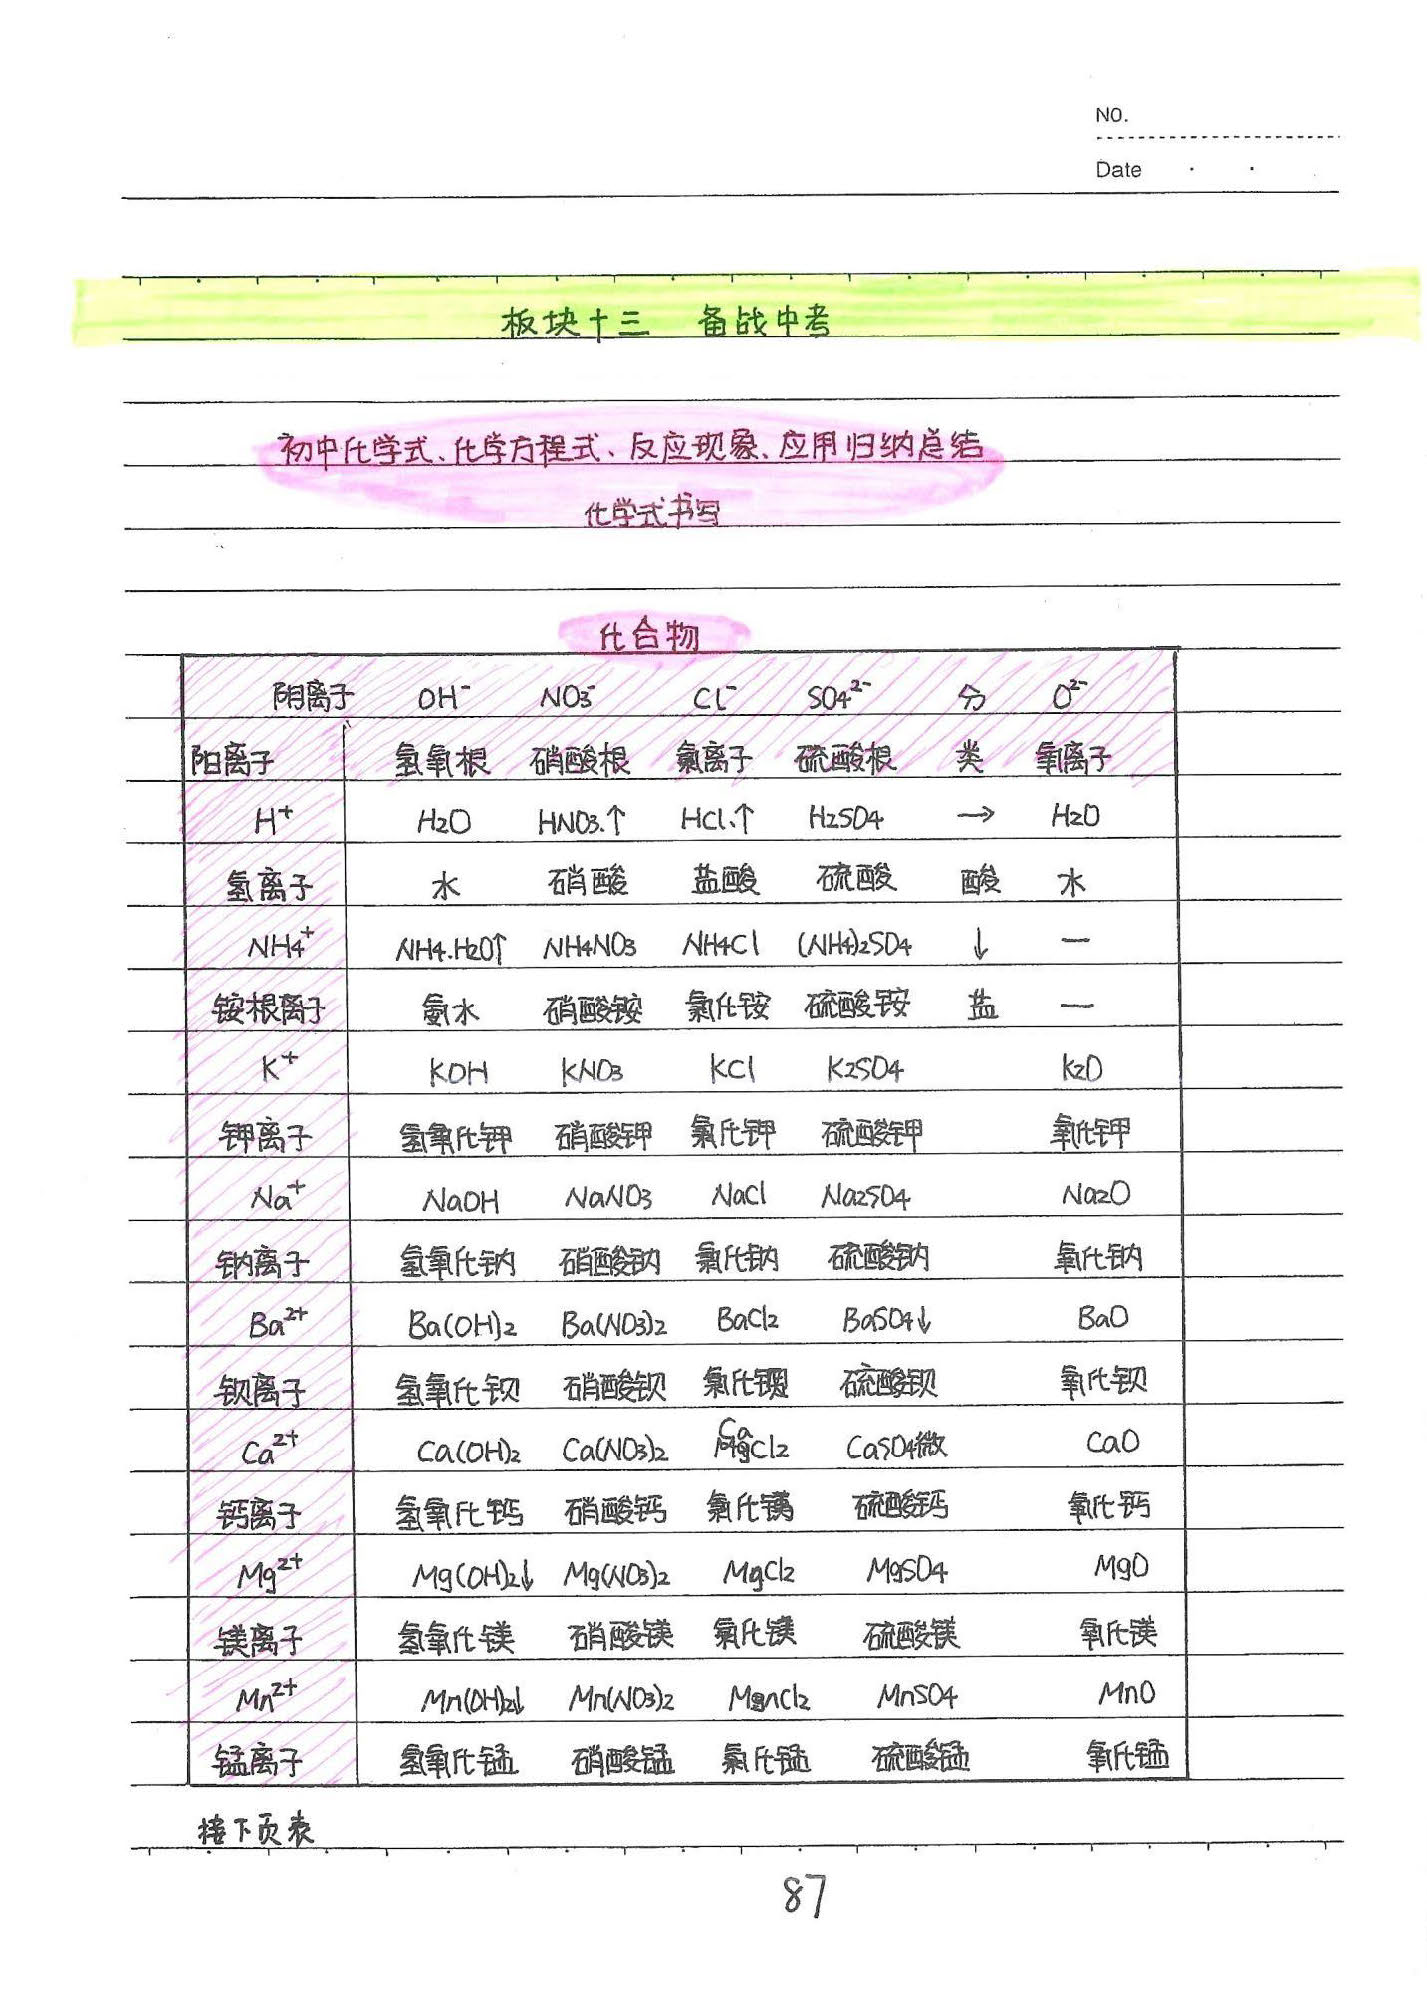 NO.
Date
板块十三 备战中考
初中化学式、化学方程式、反应现象、应用归纳总结
化学式书写
化合物
阴离子 OH⁻ NO3⁻ Cl⁻ SO4²⁻ 分 O²⁻
阳离子 氢氧根 硝酸根 氯离子 硫酸根 类 氧离子
H⁺ H2O HNO3.↑ HCl.↑ H2SO4 → H2O
氢离子 水 硝酸 盐酸 硫酸 酸 水
NH4⁺ NH4.H2O↑ NH4NO3 NH4Cl (NH4)2SO4 ↓ —
铵根离子 氨水 硝酸铵 氯化铵 硫酸铵 盐 —
K⁺ KOH KNO3 KCl K2SO4 K2O
钾离子 氢氧化钾 硝酸钾 氯化钾 硫酸钾 氧化钾
Na⁺ NaOH NaNO3 NaCl Na2SO4 Na2O
钠离子 氢氧化钠 硝酸钠 氯化钠 硫酸钠 氧化钠
Ba²⁺ Ba(OH)2 Ba(NO3)2 BaCl2 BaSO4↓ BaO
钡离子 氢氧化钡 硝酸钡 氯化钡 硫酸钡 氧化钡
Ca²⁺ Ca(OH)2 Ca(NO3)2 CaCl2 CaSO4微 CaO
钙离子 氢氧化钙 硝酸钙 氯化 硫酸钙 氧化钙
Mg²⁺ Mg(OH)2↓ Mg(NO3)2 MgCl2 MgSO4 MgO
镁离子 氢氧化镁 硝酸镁 氯化镁 硫酸镁 氧化镁
Mn²⁺ Mn(OH)2↓ Mn(NO3)2 MnCl2 MnSO4 MnO
锰离子 氢氧化锰 硝酸锰 氯化锰 硫酸锰 氧化锰
接下页表
87